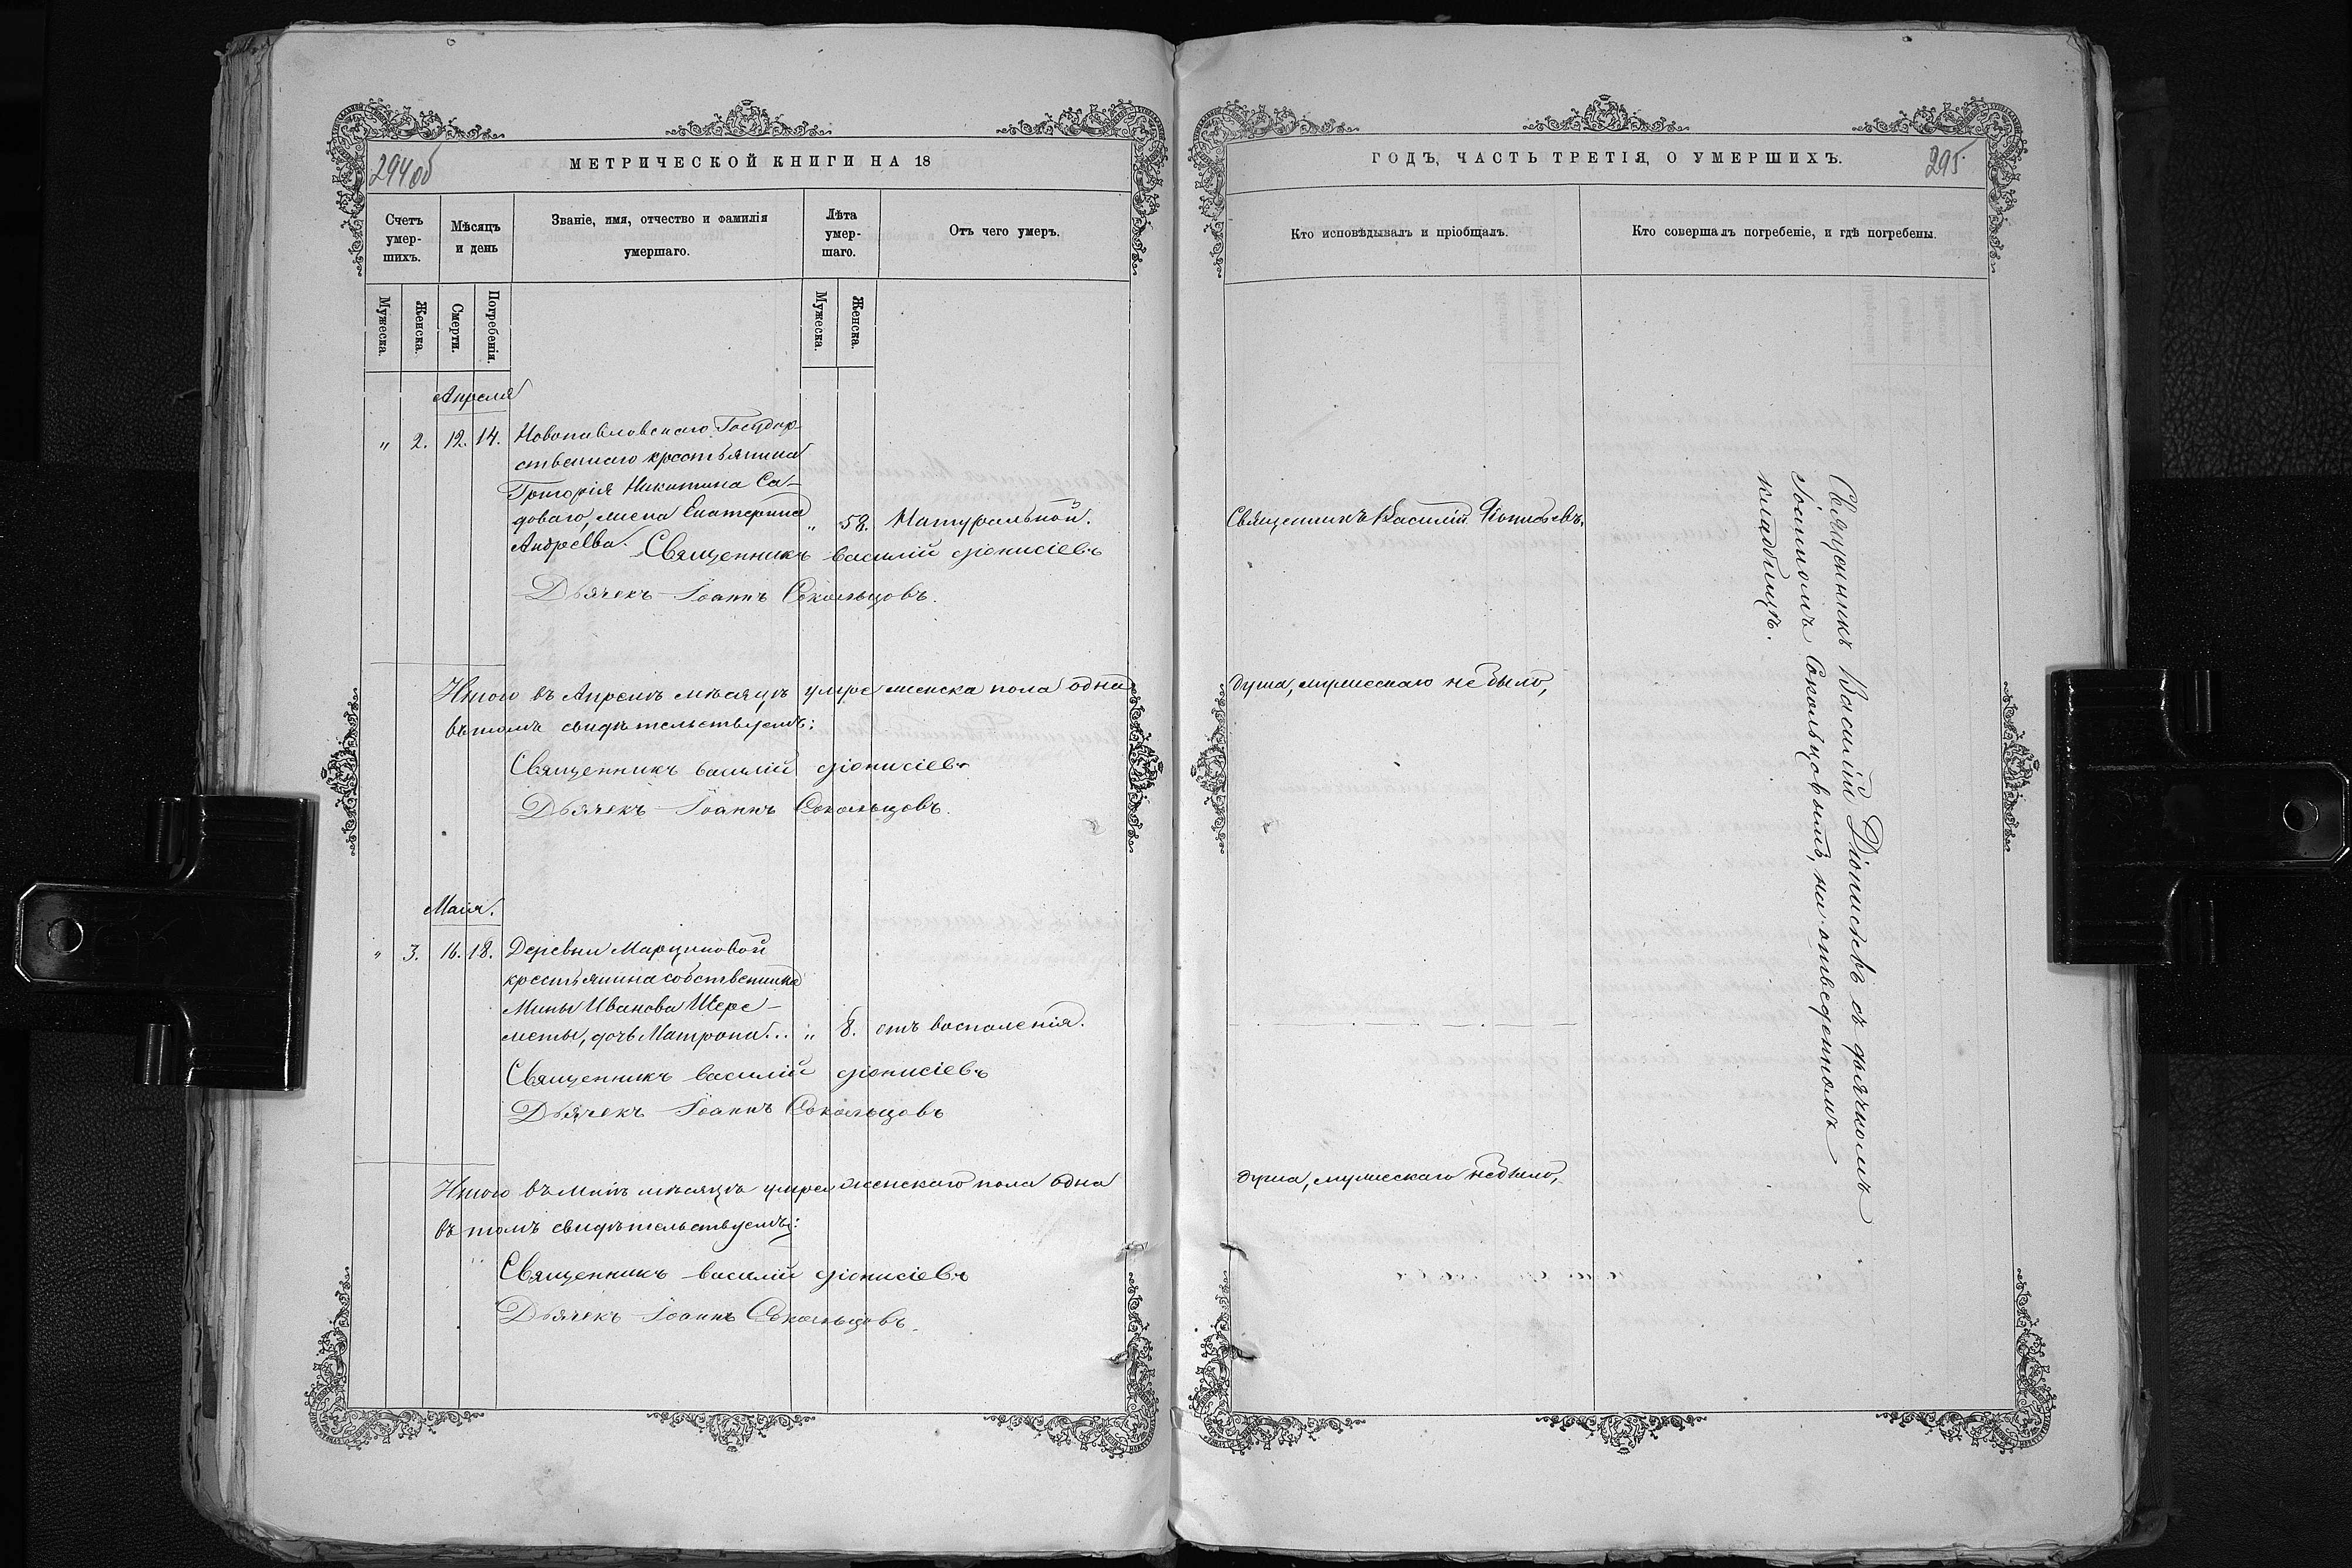 294об
МЕТРИЧЕСКОЙ КНИГИ НА 18
Счетъ умер-шихъ.
Мѣсяцъ и день
Званіе, имя, отчество и фамилія умершаго.
Лѣта умер-шаго.
Отъ чего умеръ.
Мужеска.
Женска.
Смерти.
Погребенія.
Мужеска.
Женска.
Апреля
" 2. 12. 14. Новопавловскаго Государ-
ственнаго крестьянина
Григорія Никитина Са-
доваго, жена Екатерина " 58. Натуральной.
Андреева. Священникъ Василій Діонисіевъ
Дьячекъ Іоаннъ Сокольцовъ.
Итого въ Апрелѣ мѣсяцѣ умре женска пола одна
въ томъ свидѣтельствуемъ:
Священникъ Василій Діонисіевъ
Дьячекъ Іоаннъ Сокольцовъ.
Маія.
" 3. 16. 18. Деревни Марциновой
крестьянина собственника
Мины Иванова Шере-
меты, дочь Матрона... " 8. отъ воспаленія.
Священникъ Василій Діонисіевъ
Дьячекъ Іоаннъ Сокольцовъ
Итого въ Маіѣ мѣсяцѣ умре женскаго пола одна
въ томъ свидѣтельствуемъ:
Священникъ Василій Діонисіевъ
Дьячекъ Іоаннъ Сокольцовъ.
ГОДЪ, ЧАСТЬ ТРЕТІЯ, О УМЕРШИХЪ.
295
Кто исповѣдывалъ и пріобщалъ.
Кто совершалъ погребеніе, и гдѣ погребены.
Священникъ Василій Діонисіевъ.
душа, мужескаго не было,
душа, мужескаго не было,
Священникъ Василій Діонисіевъ съ дьячкомъ
Іоанномъ Сокольцовымъ, на отведенномъ
кладбищѣ.